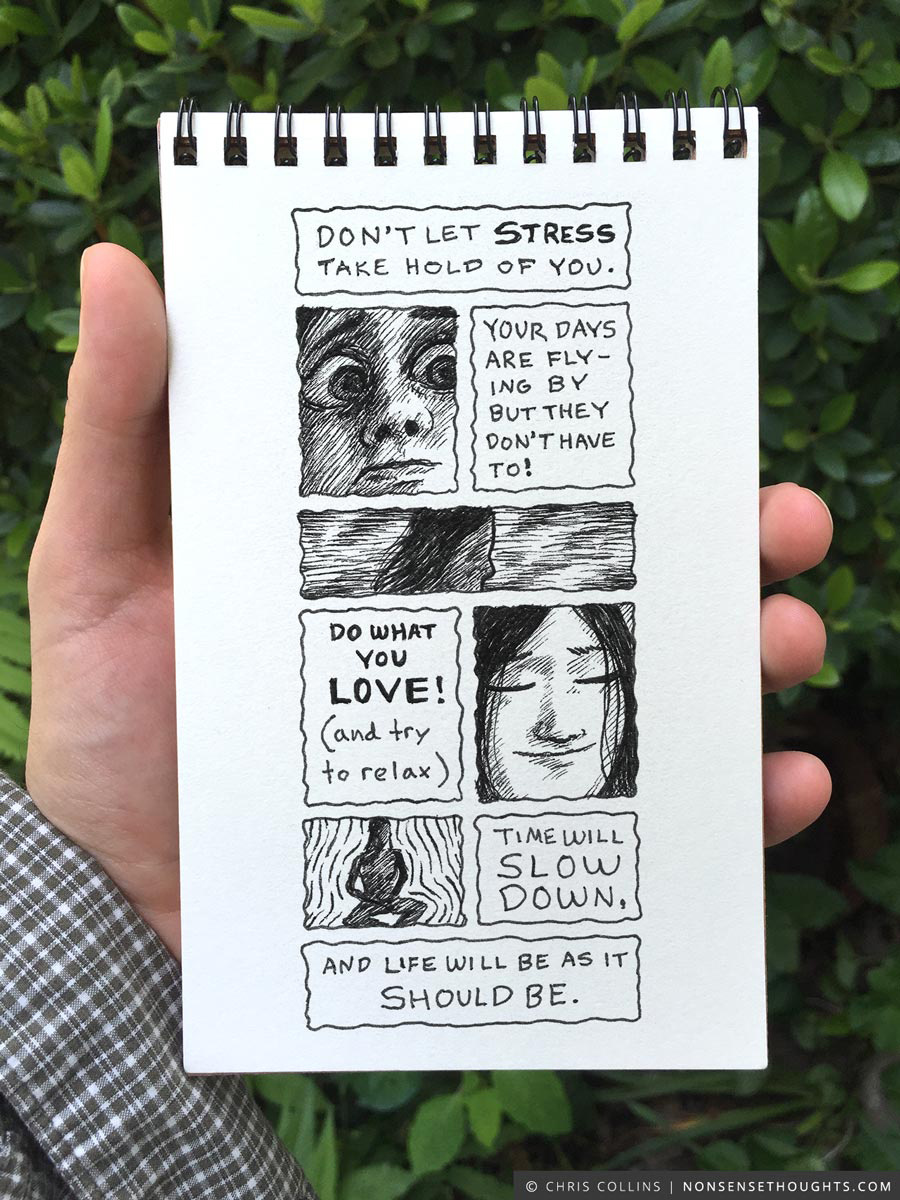 DON'T LET STRESS
TAKE HOLD OF YOU.
YOUR DAYS
ARE FLY-
ING BY
BUT THEY
DON'T HAVE
TO!
DO WHAT
YOU
LOVE!
(and try
to relax)
TIME WILL
SLOW
DOWN.
AND LIFE WILL BE AS IT
SHOULD BE.
© CHRIS COLLINS | NONSENSETHOUGHTS.COM